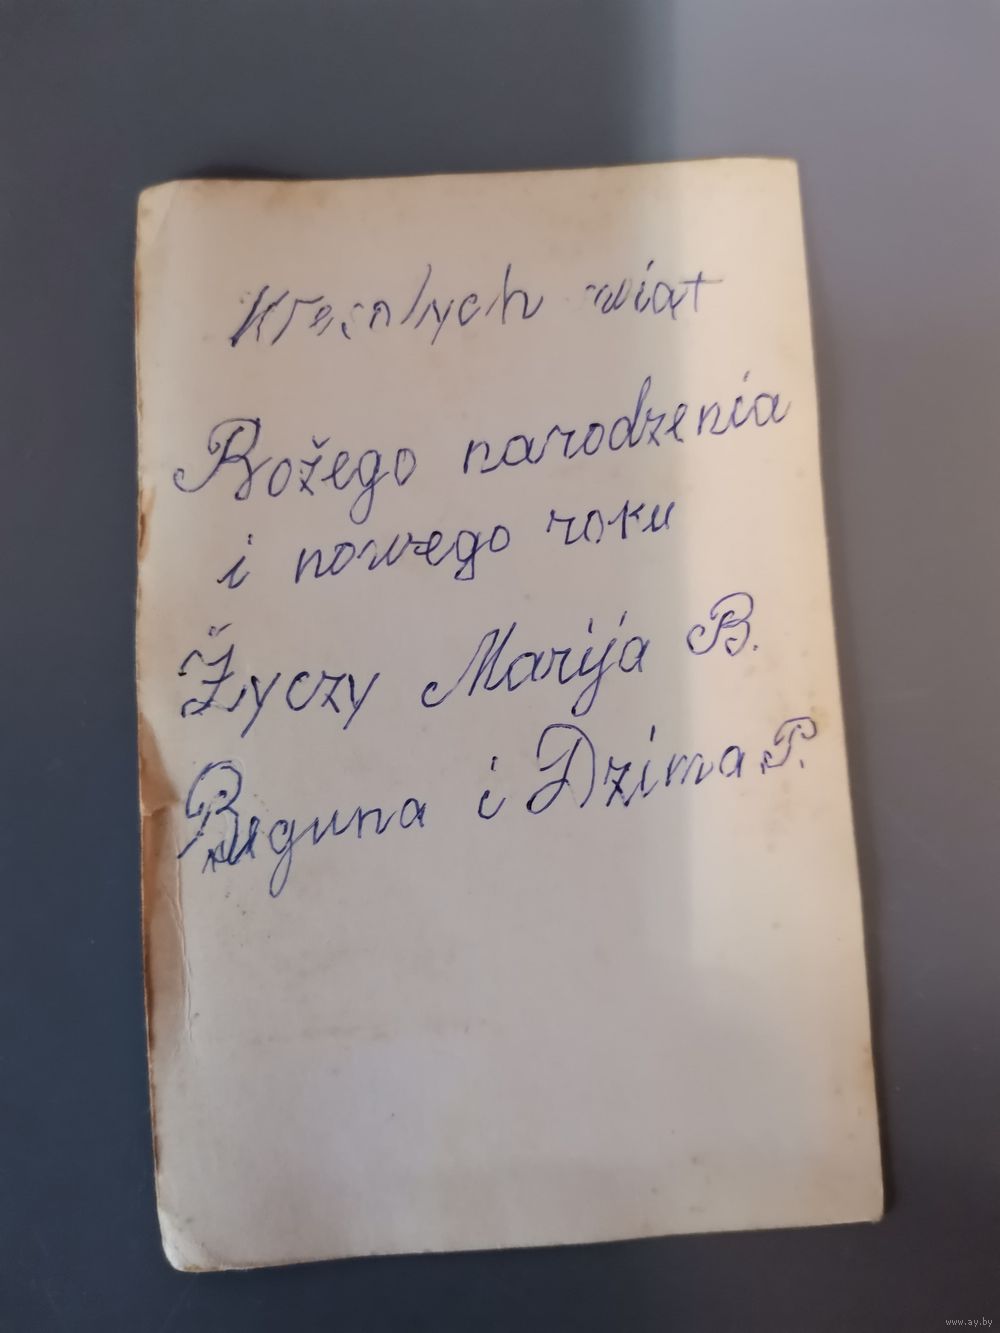 Wesołych swiąt
Božego narodzenia
i nowego roku
Žyczy Marija B.
Beguna i Dzima P.
www.ay.by